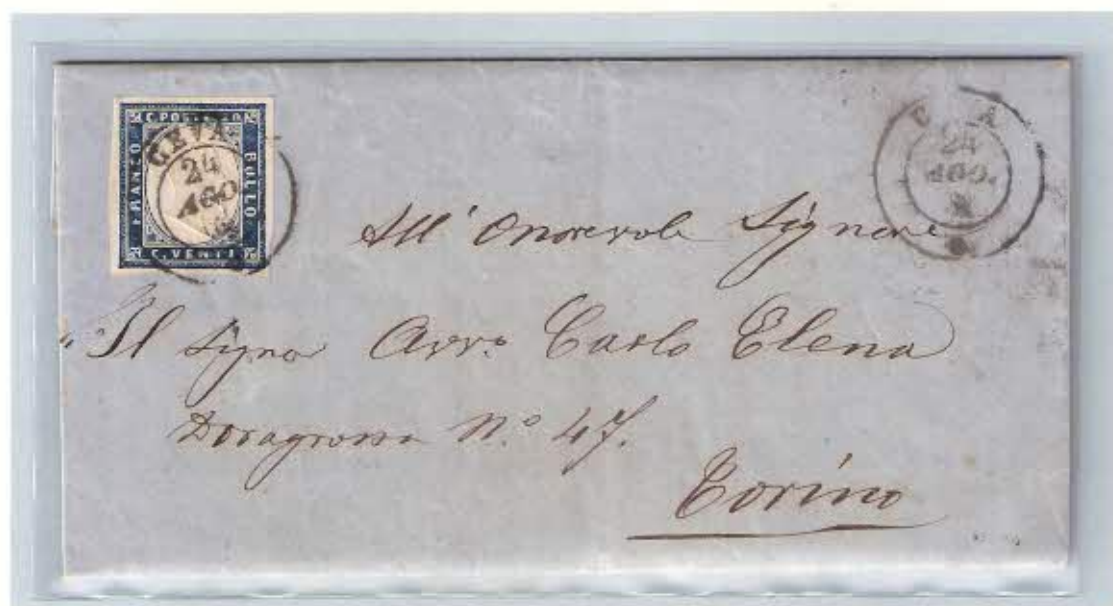 C. POSTE
FRANCO
BOLLO
C. VENTI
CEVA
24
AGO
C A
24
AGO.
All' Onorevole Signore
Il Signor Avvo. Carlo Elena
Doragrossa N.o 47.
Torino